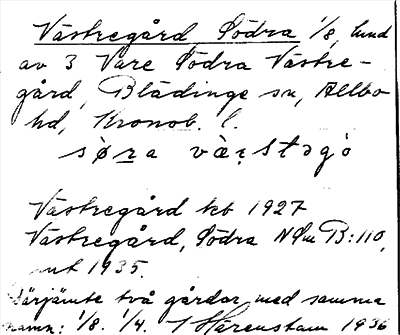 Västregård Södra 1/8, hmd
av 3 Vare Södra Västre-
gård, Blädinge sn, Allbo
hd, Kronob. l.
Västregård kb 1927
Västregård, Södra NSm B:110,
1935.
Därjämte två gårdar med samma
namn: 1/8. 1/4. Härenstam 1936